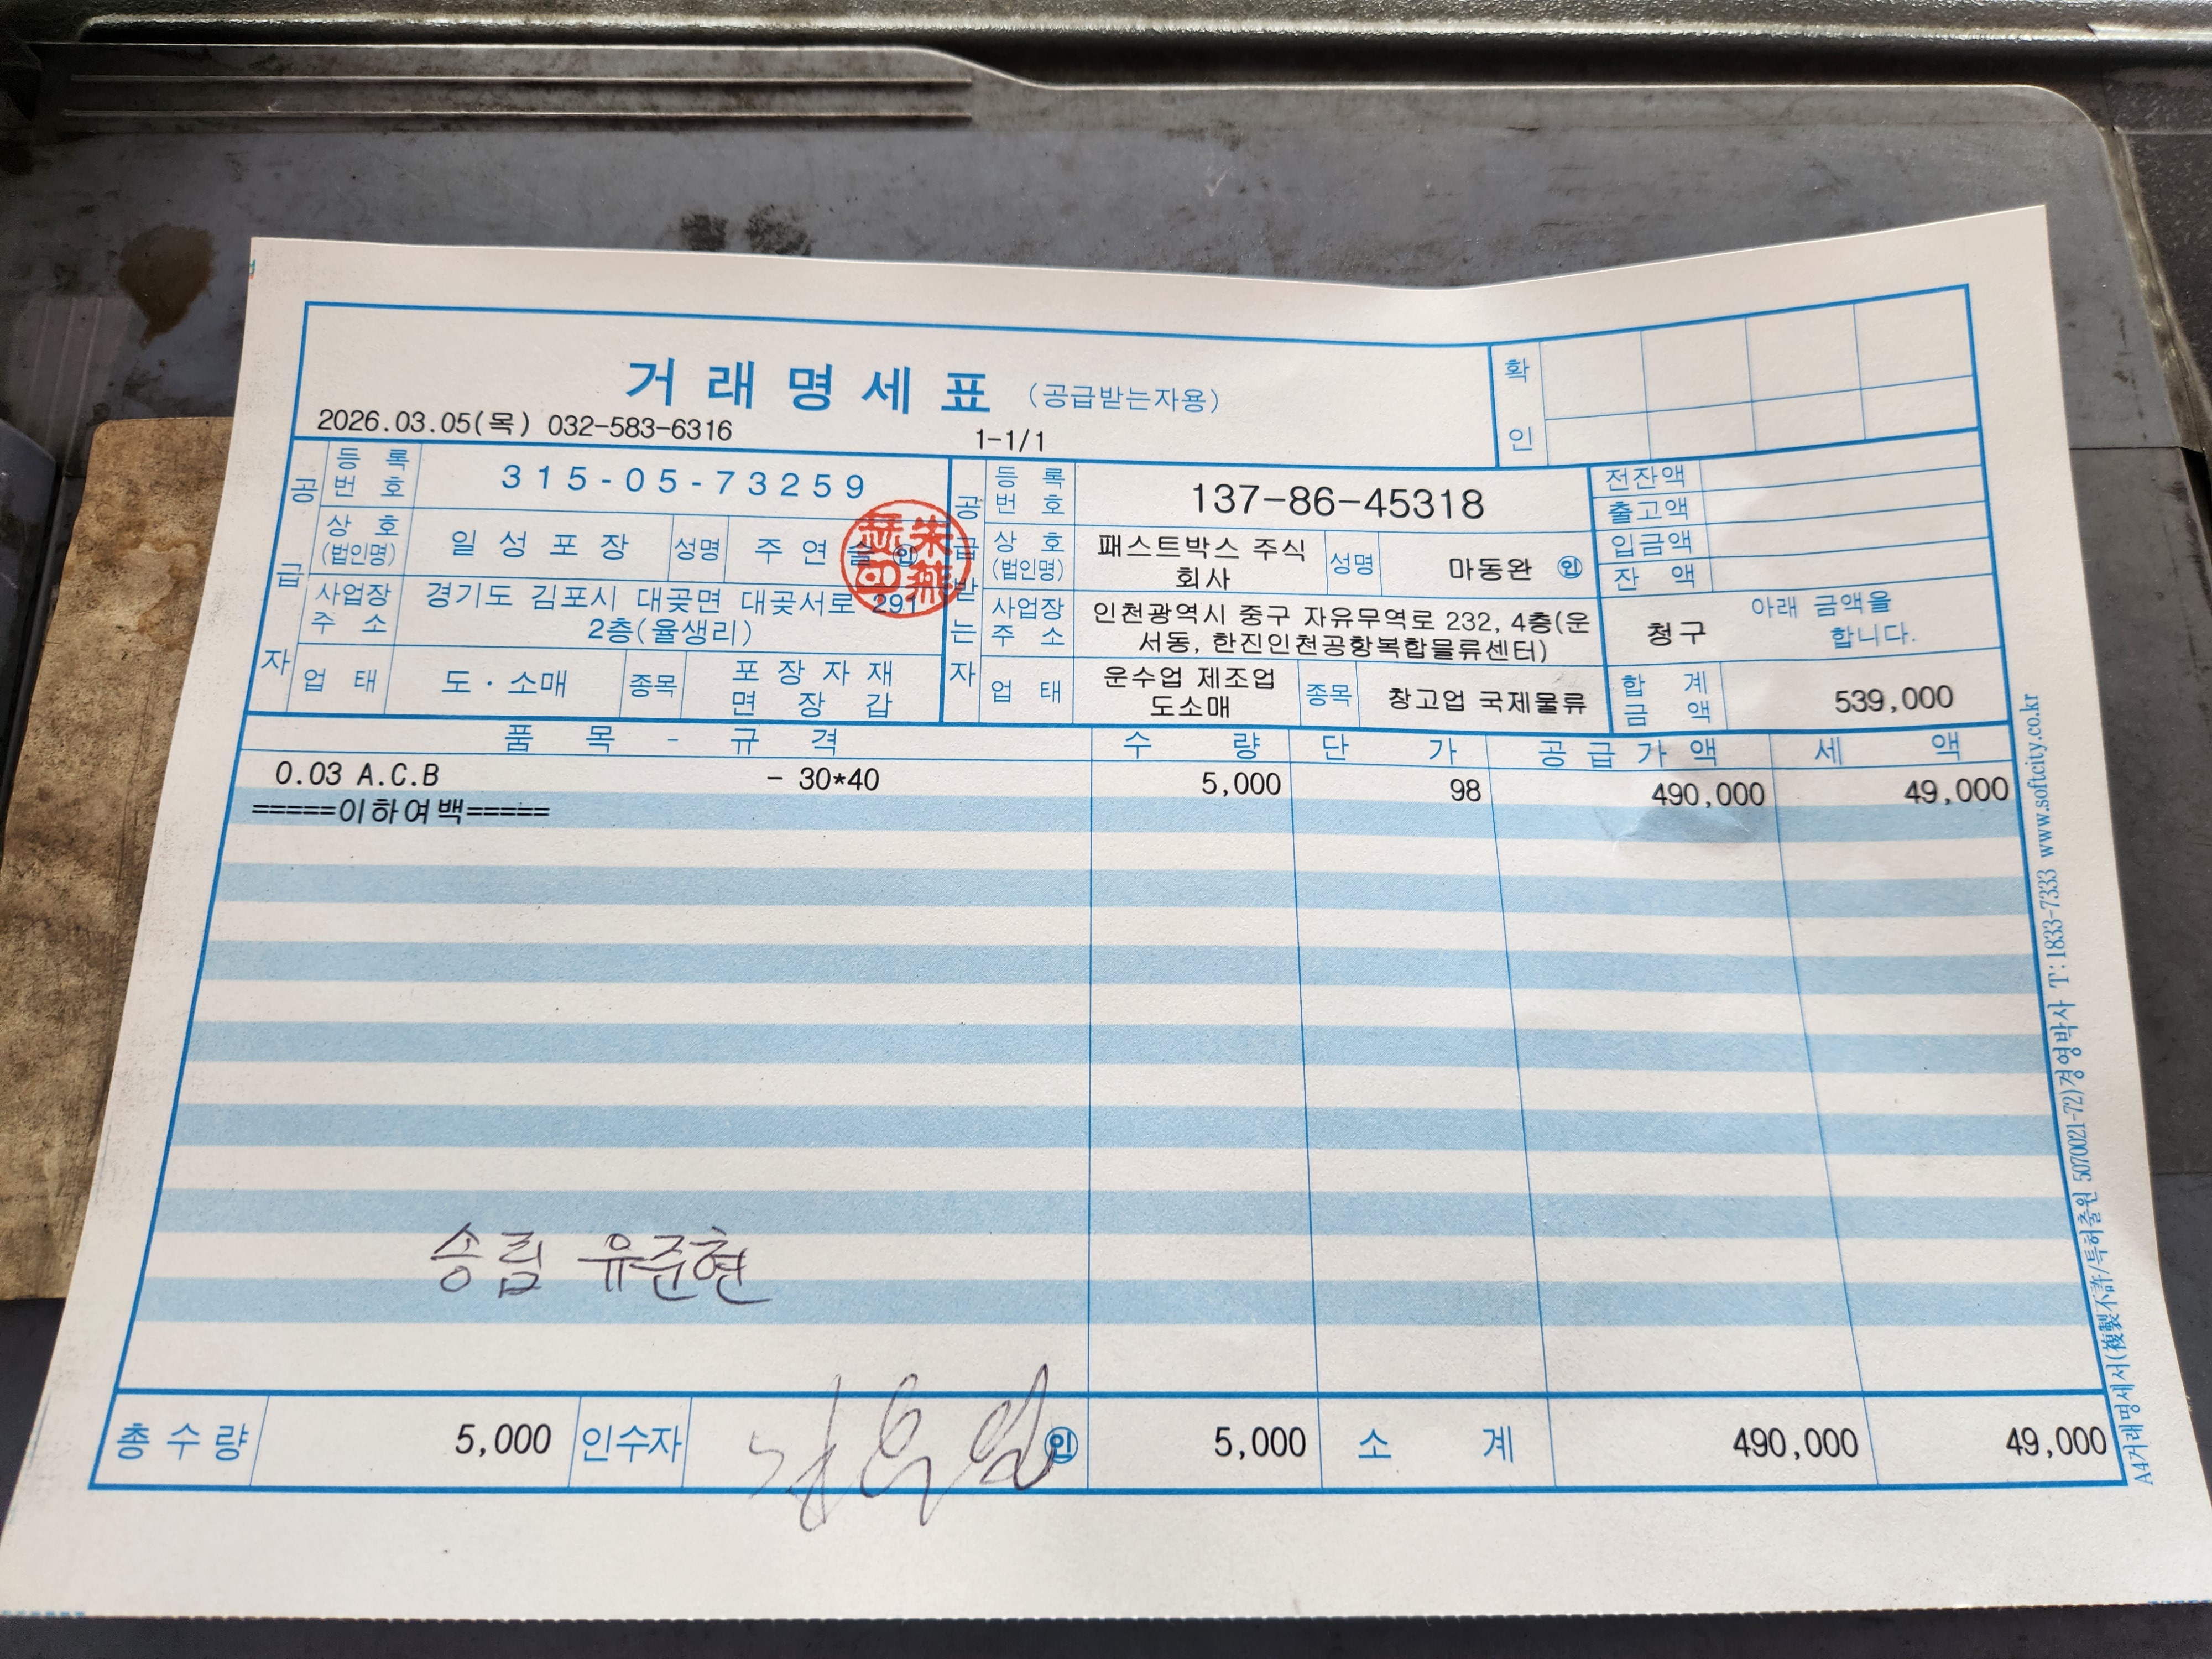 거래명세표 (공급받는자용)
2026.03.05(목) 032-583-6316 1-1/1
확인
공급자
등록번호 315-05-73259
상호(법인명) 일성포장 성명 주연슬 인
사업장주소 경기도 김포시 대곶면 대곶서로 291
2층(율생리)
업태 도·소매 종목 포장자재
면장갑
공급받는자
등록번호 137-86-45318
상호(법인명) 패스트박스 주식
회사 성명 마동완 인
사업장주소 인천광역시 중구 자유무역로 232, 4층(운
서동, 한진인천공항복합물류센터)
업태 운수업 제조업
도소매 종목 창고업 국제물류
전잔액
출고액
입금액
잔액
아래 금액을
청구 합니다.
합계금액 539,000
품목 - 규격 수량 단가 공급가액 세액
0.03 A.C.B - 30*40 5,000 98 490,000 49,000
=====이하여백=====
송림 유준현
총수량 5,000 인수자 인 5,000 소계 490,000 49,000
A4거래명세서(複製不許/특허출원 5070021-72)경영박사 T:1833-7333 www.softcity.co.kr